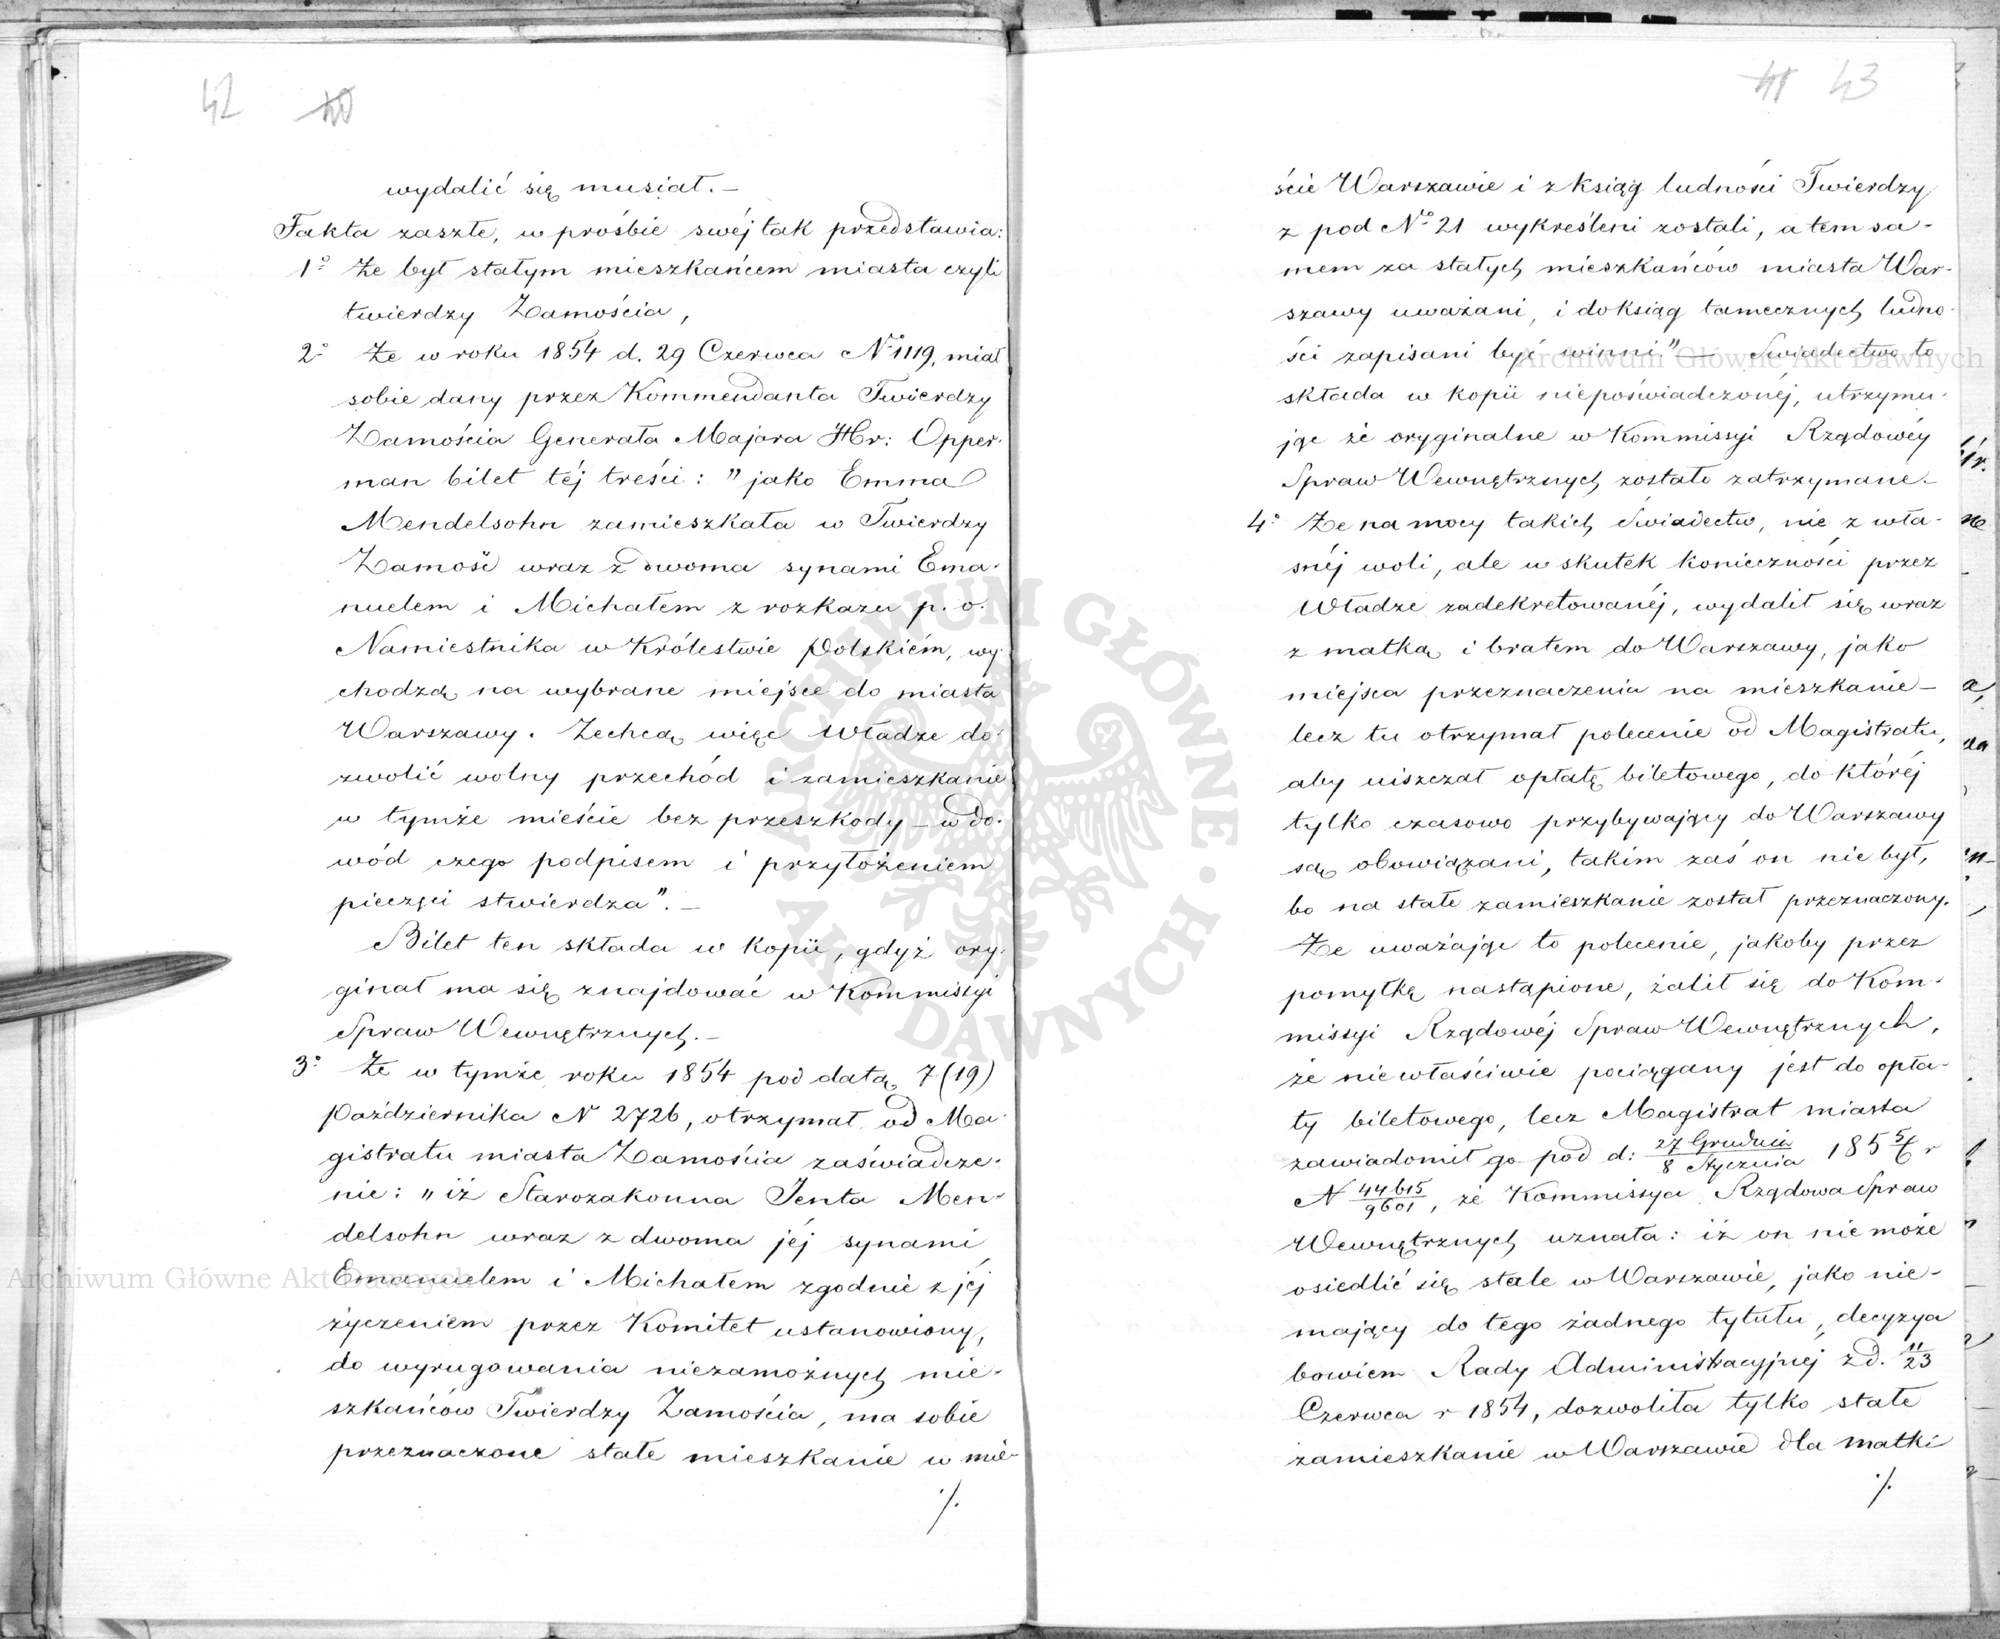 42 40
wydalić się musiał. —
Fakta zaszłe, w prośbie swéj tak przedstawia:
1° Że był stałym mieszkańcem miasta czyli
twierdzy Zamościa,
2° Że w roku 1854 d. 29 Czerwca N° 1119, miał
sobie dany przez Kommendanta Twierdzy
Zamościa Generała Majora Hr: Opper-
man bilet téj treści: "jako Emma
Mendelsohn zamieszkała w Twierdzy
Zamość wraz z dwoma synami Ema-
nuelem i Michałem z rozkazu p. o.
Namiestnika w Królestwie Polskiém, wy-
chodzą na wybrane miejsce do miasta
Warszawy. Zechcą więc Władze do-
zwolić wolny przechód i zamieszkanie
w tymże mieście bez przeszkody — w do-
wód czego podpisem i przyłożeniem
pieczęci stwierdza". —
Bilet ten składa w kopii, gdyż ory-
ginał ma się znajdować w Kommissyi
Spraw Wewnętrznych. —
3° Że w tymże roku 1854 pod datą 7 (19)
Października N 2726, otrzymał od Ma-
gistratu miasta Zamościa zaświadcze-
nie: "iż Starozakonna Jenta Men-
delsohn wraz z dwoma jéj synami
Emanuelem i Michałem zgodnie z jéj
życzeniem przez Komitet ustanowiony,
do wyrugowania niezamożnych mie-
szkańców Twierdzy Zamościa, ma sobie
przeznaczone stałe mieszkanie w mie-
./.
41 43
ście Warszawie i z ksiąg ludności Twierdzy
z pod N° 21 wykreśleni zostali, a tem sa-
mem za stałych mieszkańców miasta War-
szawy uważani, i do ksiąg tamecznych ludno-
ści zapisani być winni" — Świadectwo to
składa w kopii niepoświadczonéj, utrzymu-
jąc że oryginalne w Kommissyi Rządowéy
Spraw Wewnętrznych zostało zatrzymane. —
4° Że na mocy takich Świadectw, nie z wła-
snéj woli, ale w skutek konieczności przez
Władze zadekretowanéj, wydalił się wraz
z matką i bratem do Warszawy, jako
miejsca przeznaczenia na mieszkanie —
lecz tu otrzymał polecenie od Magistratu,
aby uiszczał opłatę biletowego, do któréj
tylko czasowo przybywający do Warszawy
są obowiązani, takim zaś on nie był,
bo na stałe zamieszkanie został przeznaczony.
Że uważając to polecenie, jakoby przez
pomyłkę nastąpione, żalił się do Kom-
missyi Rządowéj Spraw Wewnętrznych,
że niewłaściwie pociągany jest do opła-
ty biletowego, lecz Magistrat miasta
zawiadomił go pod d: 27 Grudnia/8 Stycznia 185 5/6 r
N 44615/9601, że Kommissya Rządowa Spraw
Wewnętrznych uznała: iż on nie może
osiedlić się stale w Warszawie, jako nie-
mający do tego żadnego tytułu, decyzya
bowiem Rady Administracyjnéj z d. 11/23
Czerwca r 1854, dozwoliła tylko stałe
zamieszkanie w Warszawie dla matki
./.
Archiwum Główne Akt Dawnych
Archiwum Główne Akt Dawnych
ARCHIWUM GŁÓWNE · AKT DAWNYCH ·